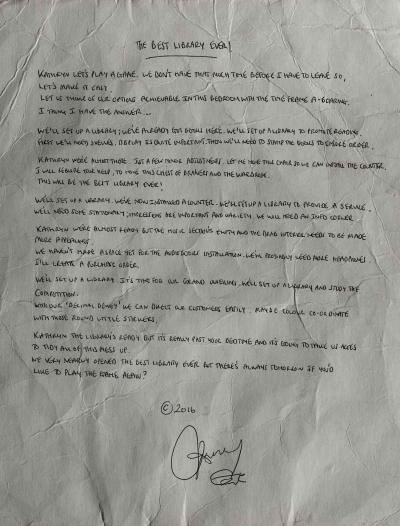 THE BEST LIBRARY EVER!
KATHRYN LET'S PLAY A GAME. WE DON'T HAVE THAT MUCH TIME BEFORE I HAVE TO LEAVE SO,
LET'S MAKE IT EASY.
LET US THINK OF OUR OPTIONS ACHIEVABLE IN THIS BEDROOM WITH THE TIME FRAME A-BEARING.
I THINK I HAVE THE ANSWER...
WE'LL SET UP A LIBRARY; WE'VE ALREADY GOT BOOKS HERE. WE'LL SET UP A LIBRARY TO PROMOTE READING.
FIRST WE'LL NEED SHELVES, DISPLAY IS QUITE IMPORTANT, THEN WE'LL NEED TO STAMP THE BOOKS TO ENSURE ORDER.
KATHRYN WE'RE ALMOST THERE. JUST A FEW MINOR ADJUSTMENTS. LET ME MOVE THIS CHAIR SO WE CAN INSTALL THE COUNTER.
I WILL REQUIRE YOUR HELP, TO MOVE THIS CHEST OF DRAWERS AND THE WARDROBE.
THIS WILL BE THE BEST LIBRARY EVER!
WE'LL SET UP A LIBRARY. WE'VE NOW INSTALLED A COUNTER. WE'LL SET UP A LIBRARY TO PROVIDE A SERVICE.
WE'LL NEED SOME STATIONERY; IMPRESSIONS ARE IMPORTANT AND VARIETY. WE WILL NEED AN INFO CORNER.
KATHRYN WE'RE ALMOST READY BUT THE MUSIC SECTION'S EMPTY AND THE DRAB INTERIOR NEEDS TO BE MADE
MORE APPEALING.
WE HAVEN'T MADE A SPACE YET FOR THE AUDIOBOOKS INSTALLATION. WE'LL PROBABLY NEED MORE HEADPHONES.
I'LL CREATE A PURCHASE ORDER.
WE'LL SET UP A LIBRARY. IT'S TIME FOR OUR GRAND UNVEILING. WE'LL SET UP A LIBRARY AND STUDY THE
COMPETITION.
WITH OUR 'DECIMAL DEWEY' WE CAN DIRECT OUR CUSTOMERS EASILY. MAYBE COLOUR CO-ORDINATE
WITH THOSE ROUND LITTLE STICKERS.
KATHRYN THE LIBRARY'S READY BUT IT'S REALLY PAST YOUR BEDTIME AND IT'S GOING TO TAKE US AGES
TO TIDY ALL OF THIS MESS UP.
WE VERY NEARLY OPENED THE BEST LIBRARY EVER BUT THERE'S ALWAYS TOMORROW IF YOU'D
LIKE TO PLAY THE GAME AGAIN?
© 2016